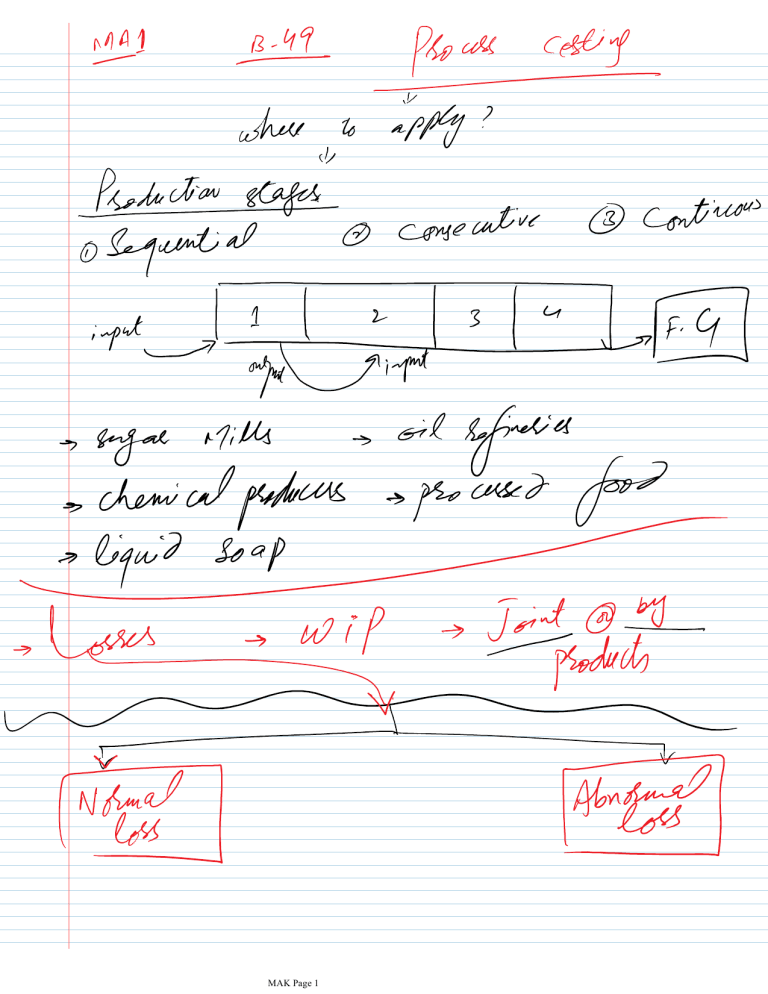 MA1 B-49 Process costing
where to apply?
Production stages
① Sequential ② Consecutive ③ Continous
input 1 2 3 4 F.G
output input
→ sugar Mills → oil refineries
→ chemical producers → processed food
→ liquid soap
→ Losses → WiP → Joint or by
products
Normal Abnormal
loss loss
MAK Page 1